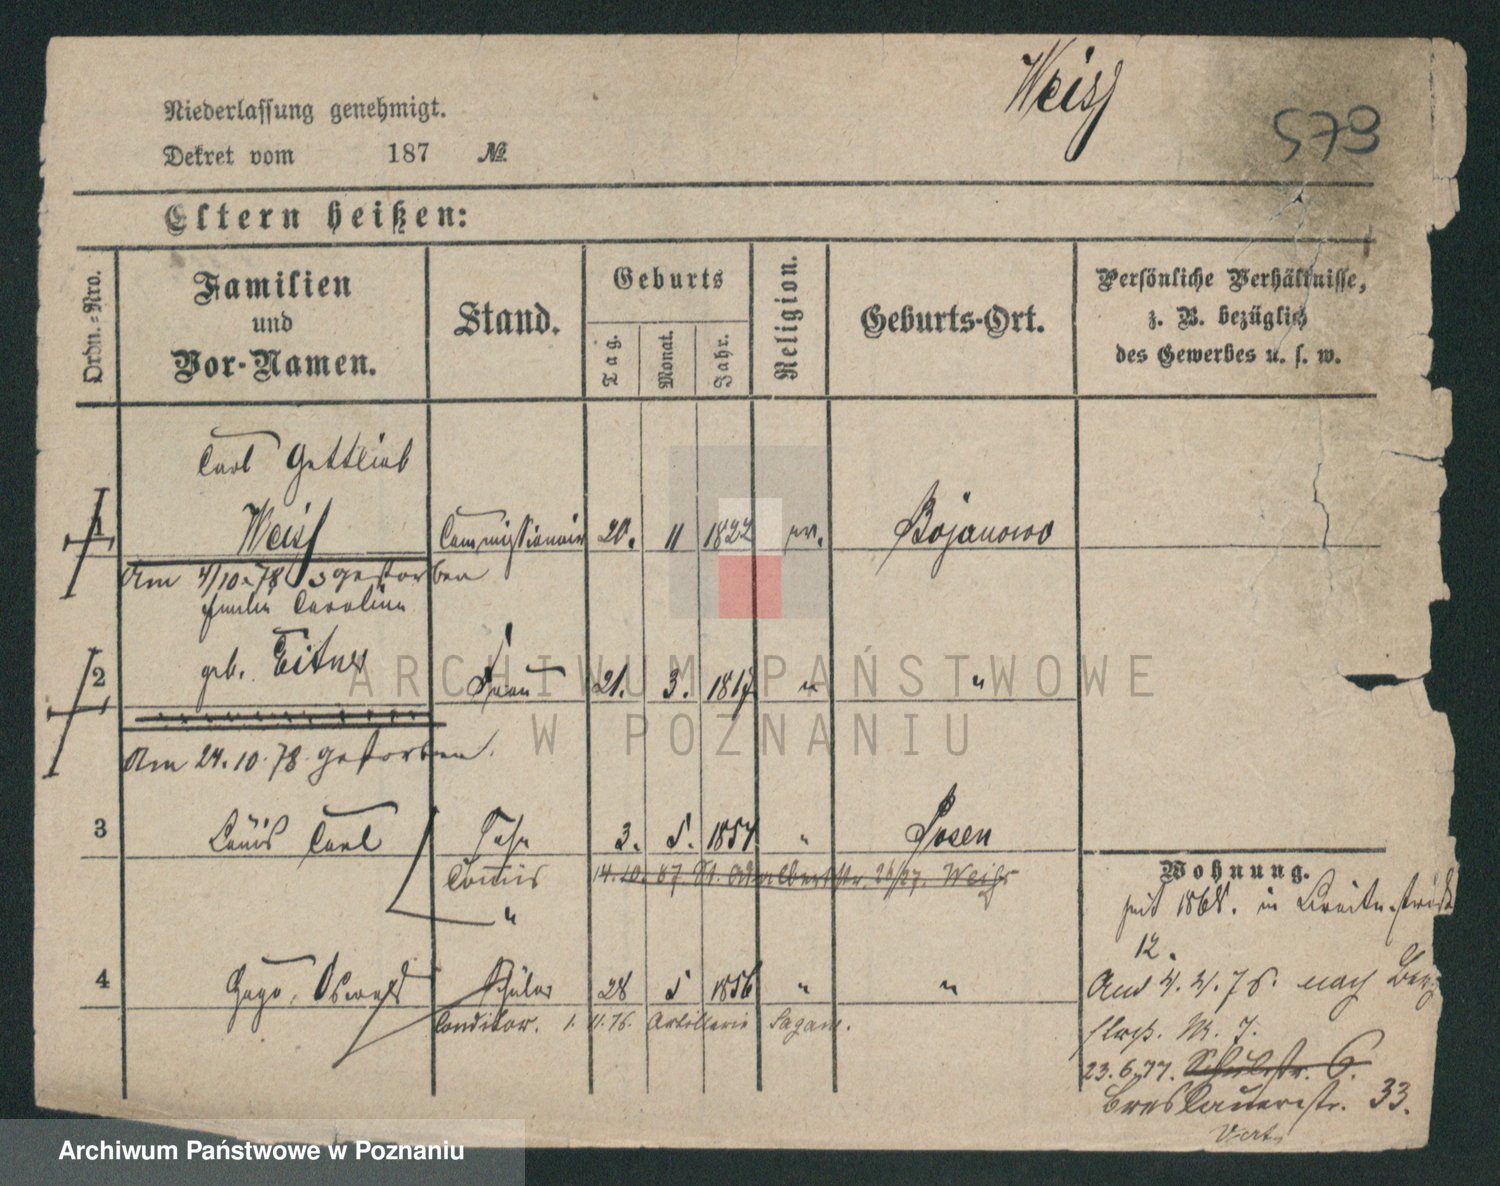 Weiss
579
Niederlassung genehmigt.
Dekret vom 187 №
Eltern heißen:
Ordn.-Nro.
Familien
und
Vor-Namen.
Stand.
Geburts
Tag.
Monat.
Jahr.
Religion.
Geburts-Ort.
Persönliche Verhältnisse,
z. B. bezüglich
des Gewerbes u. s. w.
Carl Gottlieb
1 Weiss Commissionair 20. 11 1822 ev. Bojanowo
Am 4/10.78 gestorben
Emilie Caroline
2 geb. Eitner Frau 21. 3. 1817 " "
Am 24.10.78 gestorben.
3 Louis Carl Sohn 3. 5. 1854 " Posen
Commis 14.10.67. St. Adalbertstr. 26/27. Weiss
"
4 Hugo Oswald Schüler 28 5 1856 " "
Conditor. 1. 11.76. Artillerie Sagan.
Wohnung.
seit 1868. in
12.
And 4. 4. 76. nach
23.6.77. Schulstr. 6.
Breslauerstr. 33.
Vert.
ARCHIWUM PAŃSTWOWE
W POZNANIU
Archiwum Państwowe w Poznaniu